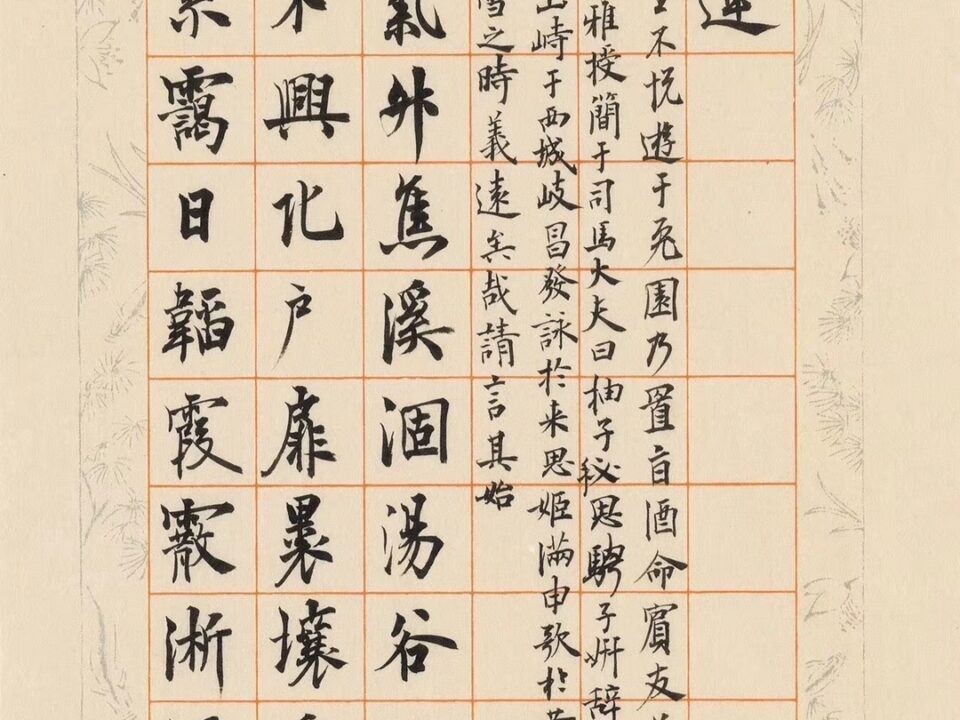 連
不悅遊于兔園乃置旨酒命賓友
雅授簡于司馬大夫曰抽子秘思騁子妍辭
山峙于西城岐昌發詠於来思姬滿申歌於
雪之時義遠矣哉請言其始
氣升焦溪涸湯谷
不興北户扉裸壤
累靄日韜霞霰淅